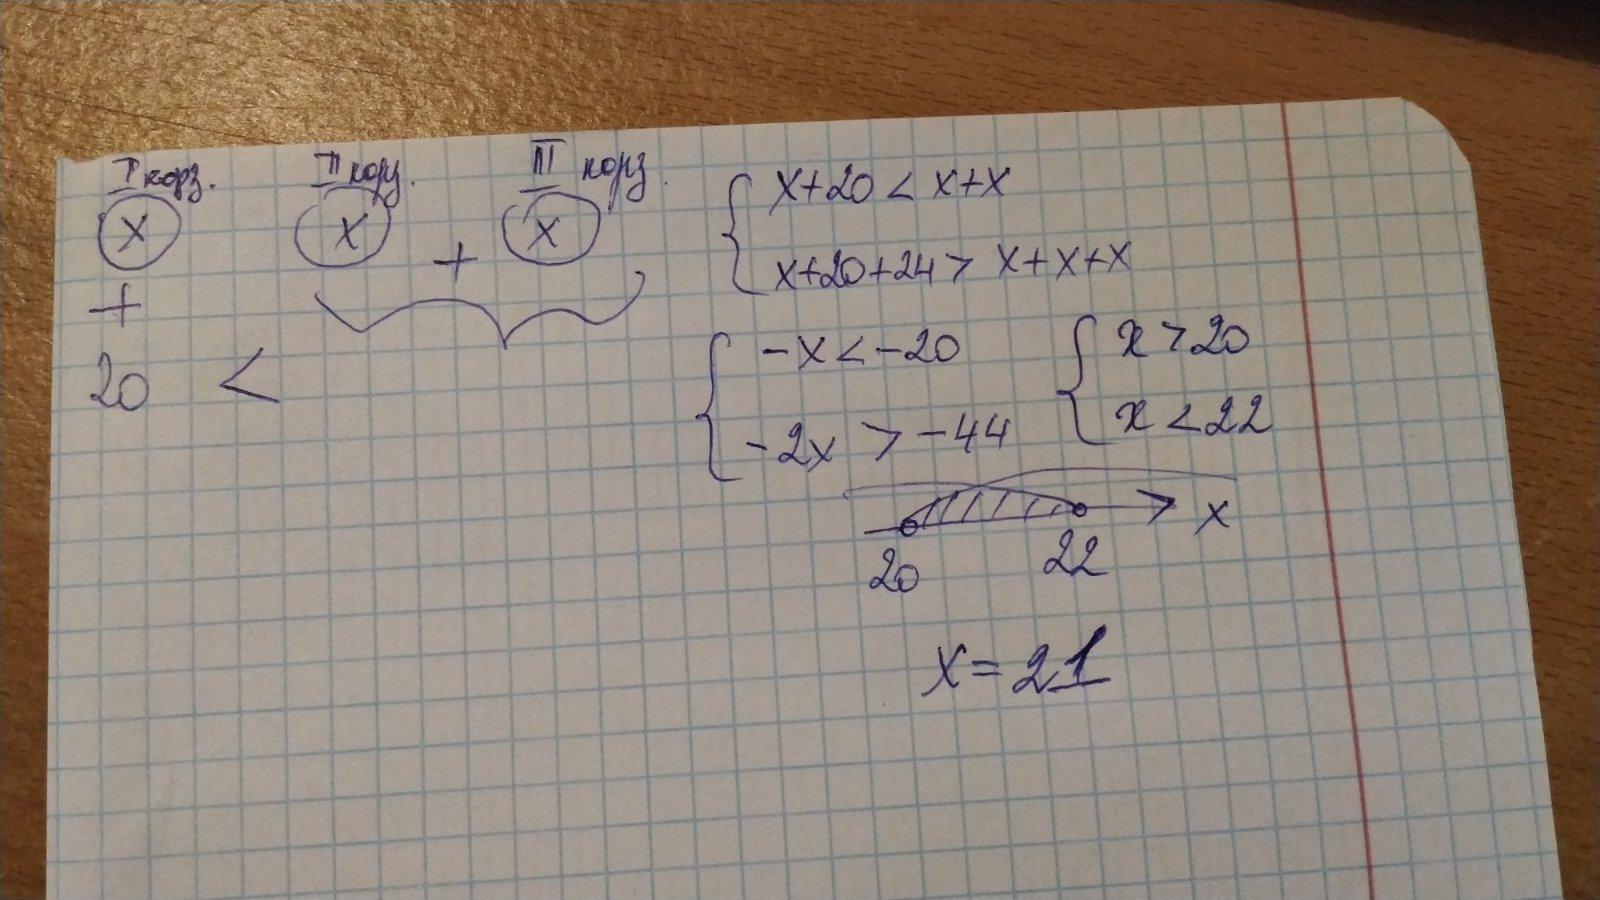 I корз. II корз. III корз.
x x + x
+
20 <
{ x+20 < x+x
x+20+24 > x+x+x
{ -x < -20
-2x > -44
{ x > 20
x < 22
20 22 x
x = 21